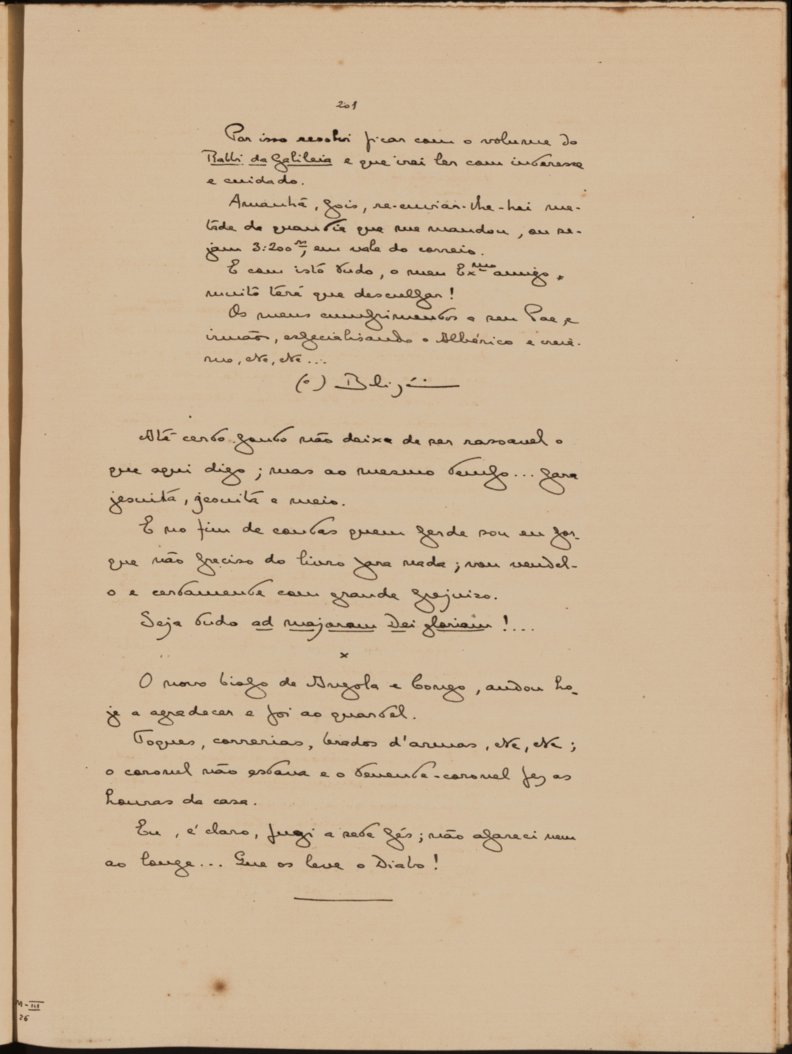 201
Por isso resolvi ficar com o volume do
Rabbi da Galileia e que irei ler com interesse
e cuidado.
Amanhã, pois, re-enviar-lhe-hei me-
tade da quantia que me mandou, ou se-
jam 3:200 rs, em vale do correio.
E com isto tudo, o meu Exmo amigo,
muito terá que desculpar!
Os meus cumprimentos a seu Pae e
irmãos, especialisando o Albérico e
mo, etc, etc...
(a)
Até certo ponto não deixa de ser rasoavel o
que aqui digo; mas ao mesmo tempo... para
jesuita, jesuita e meio.
E no fim de contas quem perde sou eu por-
que não preciso do livro para nada; vou vendel-
o e certamente com grande prejuizo.
Seja tudo ad majoram Dei gloriam!...
x
O novo bispo de Angola e Congo, andou ho-
je a agradecer e foi ao quartel.
Toques, correrias, brados d'armas, etc, etc;
o coronel não estava e o tenente-coronel fez as
honras da casa.
Eu, é claro, fugi a sete pés; não apareci nem
ao longe... Que os leve o Diabo!
M-III
26